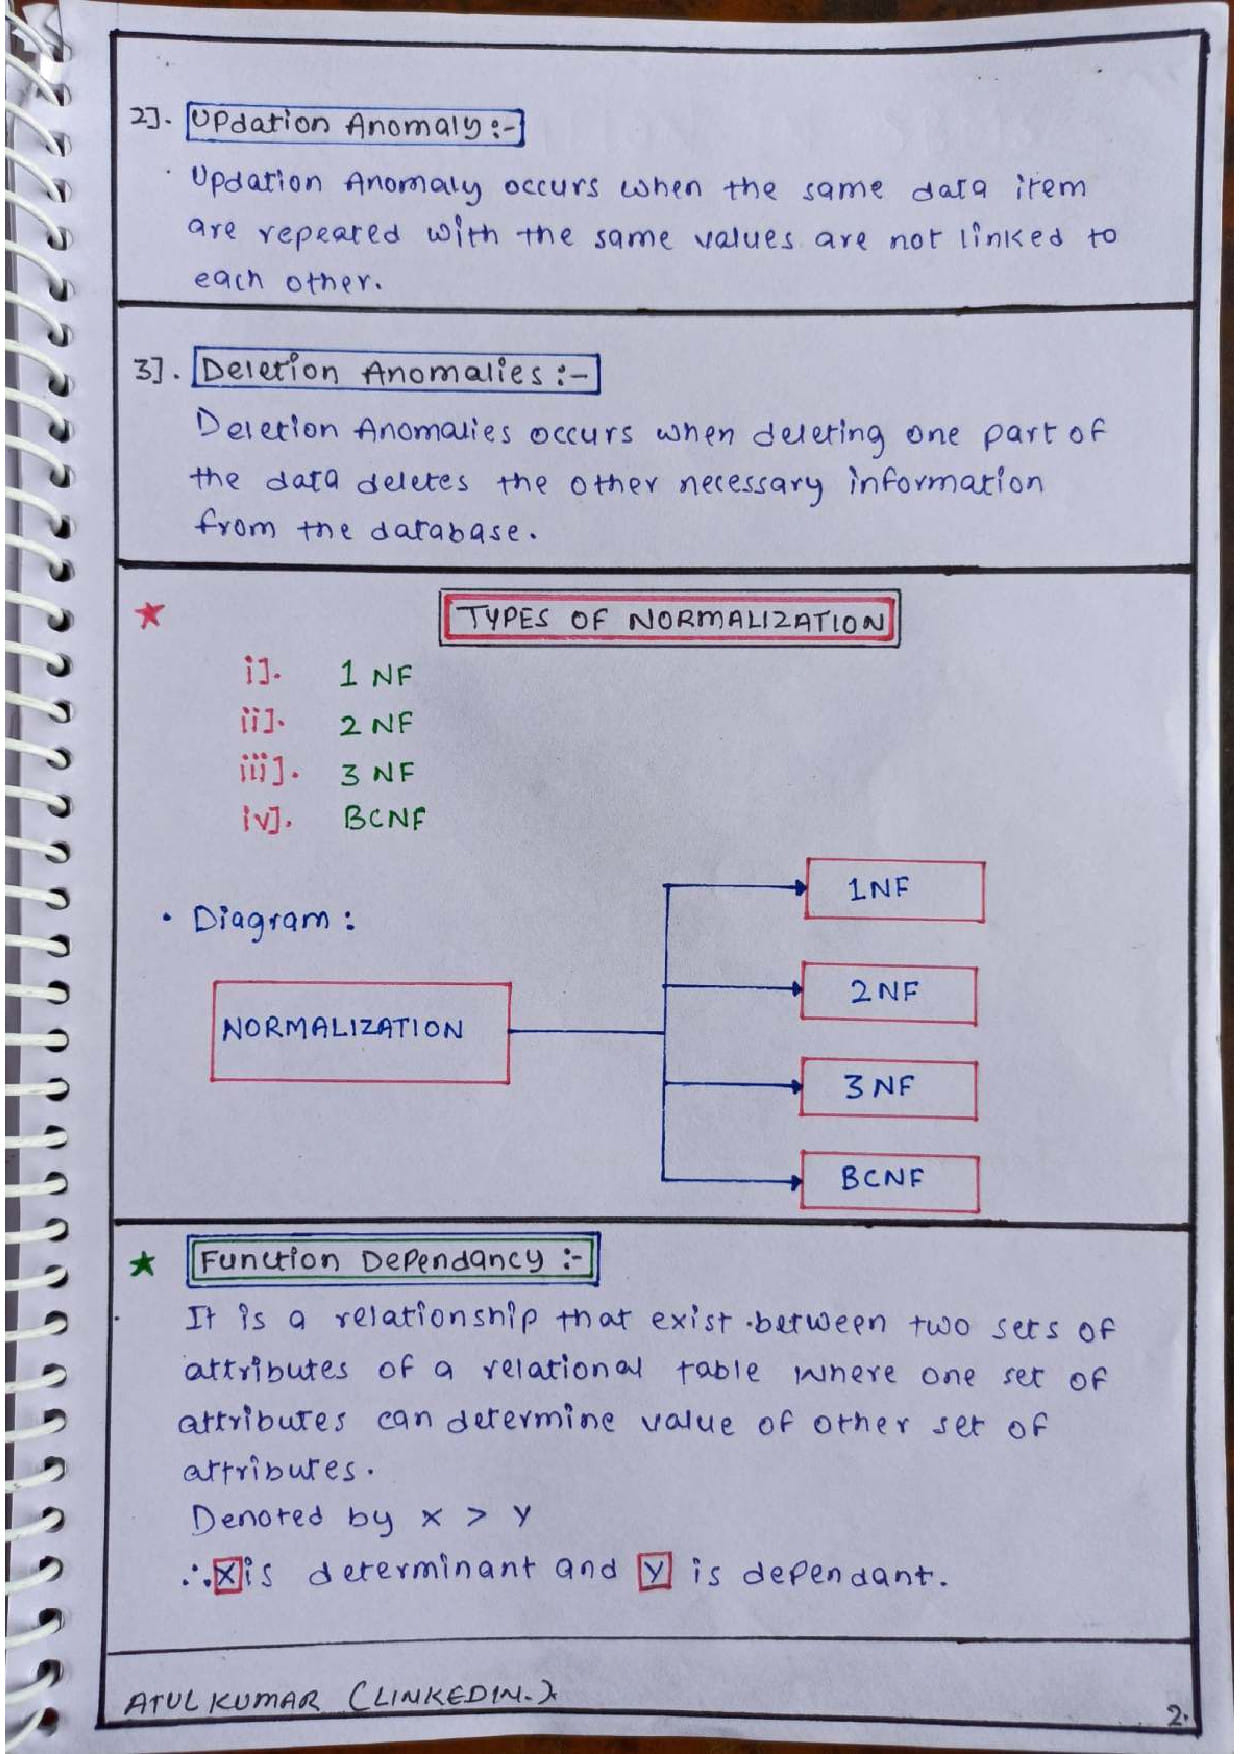 2]. Updation Anomaly :-
· Updation Anomaly occurs when the same data item
are repeated with the same values are not linked to
each other.
3]. Deletion Anomalies :-
Deletion Anomalies occurs when deleting one part of
the data deletes the other necessary information
from the database.
★ TYPES OF NORMALIZATION
i]. 1 NF
ii]. 2 NF
iii]. 3 NF
iv]. BCNF
• Diagram :
NORMALIZATION
1NF
2NF
3NF
BCNF
★ Function Dependancy :-
It is a relationship that exist between two sets of
attributes of a relational table where one set of
attributes can determine value of other set of
attributes.
Denoted by X > Y
∴ X is determinant and Y is dependant.
ATUL KUMAR (LINKEDIN.)
2.